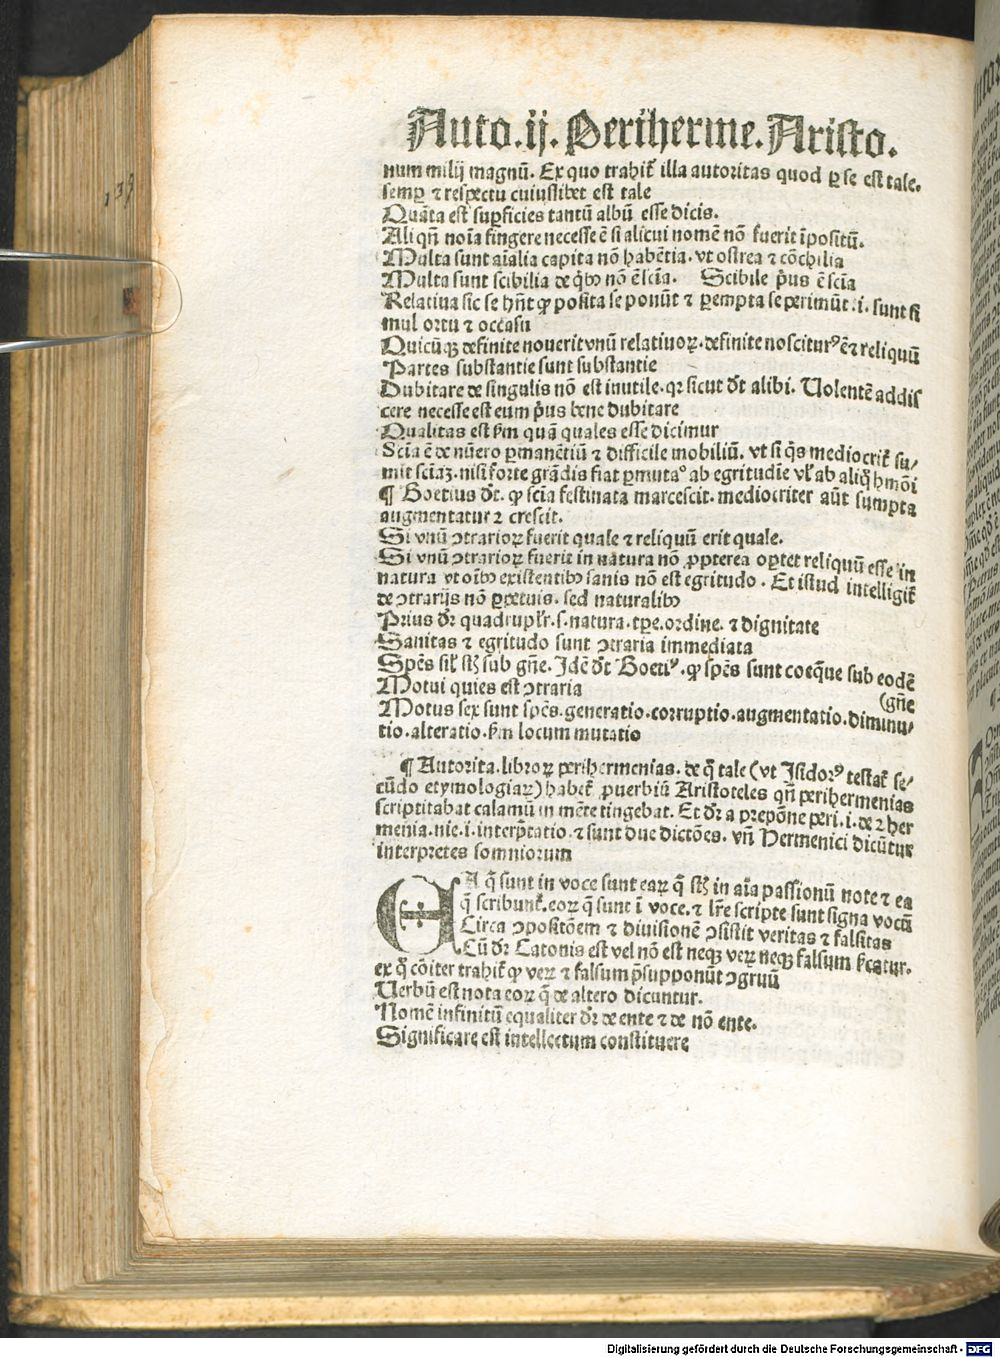 Auto.ij.Periherme.Aristo.
num milij magnū. Ex quo trahit̄ illa autoritas quod ꝑ se est tale.
semꝑ ⁊ respectu cuiuslibet est tale
Quāta est suꝑficies tantū albū esse dicis.
Ali qn̄ noīa fingere necesse ē si alicui nomē nō fuerit īpositū.
Multa sunt aīalia capita nō habētia. vt ostrea ⁊ cōchilia
Multa sunt scibilia de qͥbꝰ nō ē scīa. Scibile pͥus ē scīa
Relatiua sic se hn̄t ꝙ posita se ponūt ⁊ ꝑempta se perimūt .i. sunt si
mul ortu ⁊ occasu
Quicūqꝫ definite nouerit vnū relatiuoꝝ. definite noscitur⁹ ē ⁊ reliquū
Partes substantie sunt substantie
Dubitare de singulis nō est inutile. qꝛ sicut dr̄ alibi. Uolentē addis
cere necesse est eum pͥus bene dubitare
Qualitas est ẜm quā quales esse dicimur
Scīa ē de nūero ꝑmanētiū ⁊ difficile mobiliū. vt si qͥs mediocrit̄ su/
mit scīaꝫ. nisi forte grādis fiat ꝑmutaᵒ ab egritudīe vl̓ ab aliqͦ hmōi
¶ Boetius dt̄. ꝙ scīa festinata marcescit. mediocriter aūt sumpta
augmentatur ⁊ crescit.
Si vnū ꝯtrarioꝝ fuerit quale ⁊ reliquū erit quale.
Si vnū ꝯtrarioꝝ fuerit in natura nō ꝓpterea oꝑtet reliquū esse in
natura vt oībꝰ existentibꝰ sanis nō est egritudo. Et istud intelligit̄
de ꝯtrarijs nō ꝑpetuis. sed naturalibꝰ
Prius dr̄ quadruplr̄. s. natura. tꝑe. ordine. ⁊ dignitate
Sanitas ⁊ egritudo sunt ꝯtraria immediata
Spēs sil̓ st̄ sub gn̄e. Idē dt̄ Boeti⁹. ꝙ spēs sunt coeq̄ue sub eodē
Motui quies est ꝯtraria (gn̄e
Motus sex sunt spēs. generatio. corruptio. augmentatio. diminu/
tio. alteratio. ẜm locum mutatio
¶ Autorita. libroꝝ perihermenias. de qͦ tale (vt Isidor⁹ testat̄ se/
cūdo etymologiaꝝ) habet̄ ꝓuerbiū Aristoteles qn̄ perihermenias
scriptitabat calamū in mēte tingebat. Et dr̄ a prepōne peri .i. de ⁊ her
menia. nie .i. interp̄tatio. ⁊ sunt due dictōes. vn̄ Hermenici dicūtur
interpretes somniorum
EA q̄ sunt in voce sunt eaꝝ q̄ st̄ in aīa passionū note ⁊ ea
q̄ scribunt̄. eoꝝ q̄ sunt ī voce. ⁊ lr̄e scripte sunt signa vocū
Circa ꝯpositōem ⁊ diuisionē ꝯsistit veritas ⁊ falsitas
Cū dr̄ Catonis est vel nō est neqꝫ veꝝ neqꝫ falsum ẜcatur.
ex qͦ cōiter trahit̄ ꝙ veꝝ ⁊ falsum p̄supponūt ꝯgruū
Uerbū est nota eoꝝ q̄ de altero dicuntur.
Nomē infinitū equaliter dr̄ de ente ⁊ de nō ente.
Significare est intellectum constituere
Digitalisierung gefördert durch die Deutsche Forschungsgemeinschaft - DFG